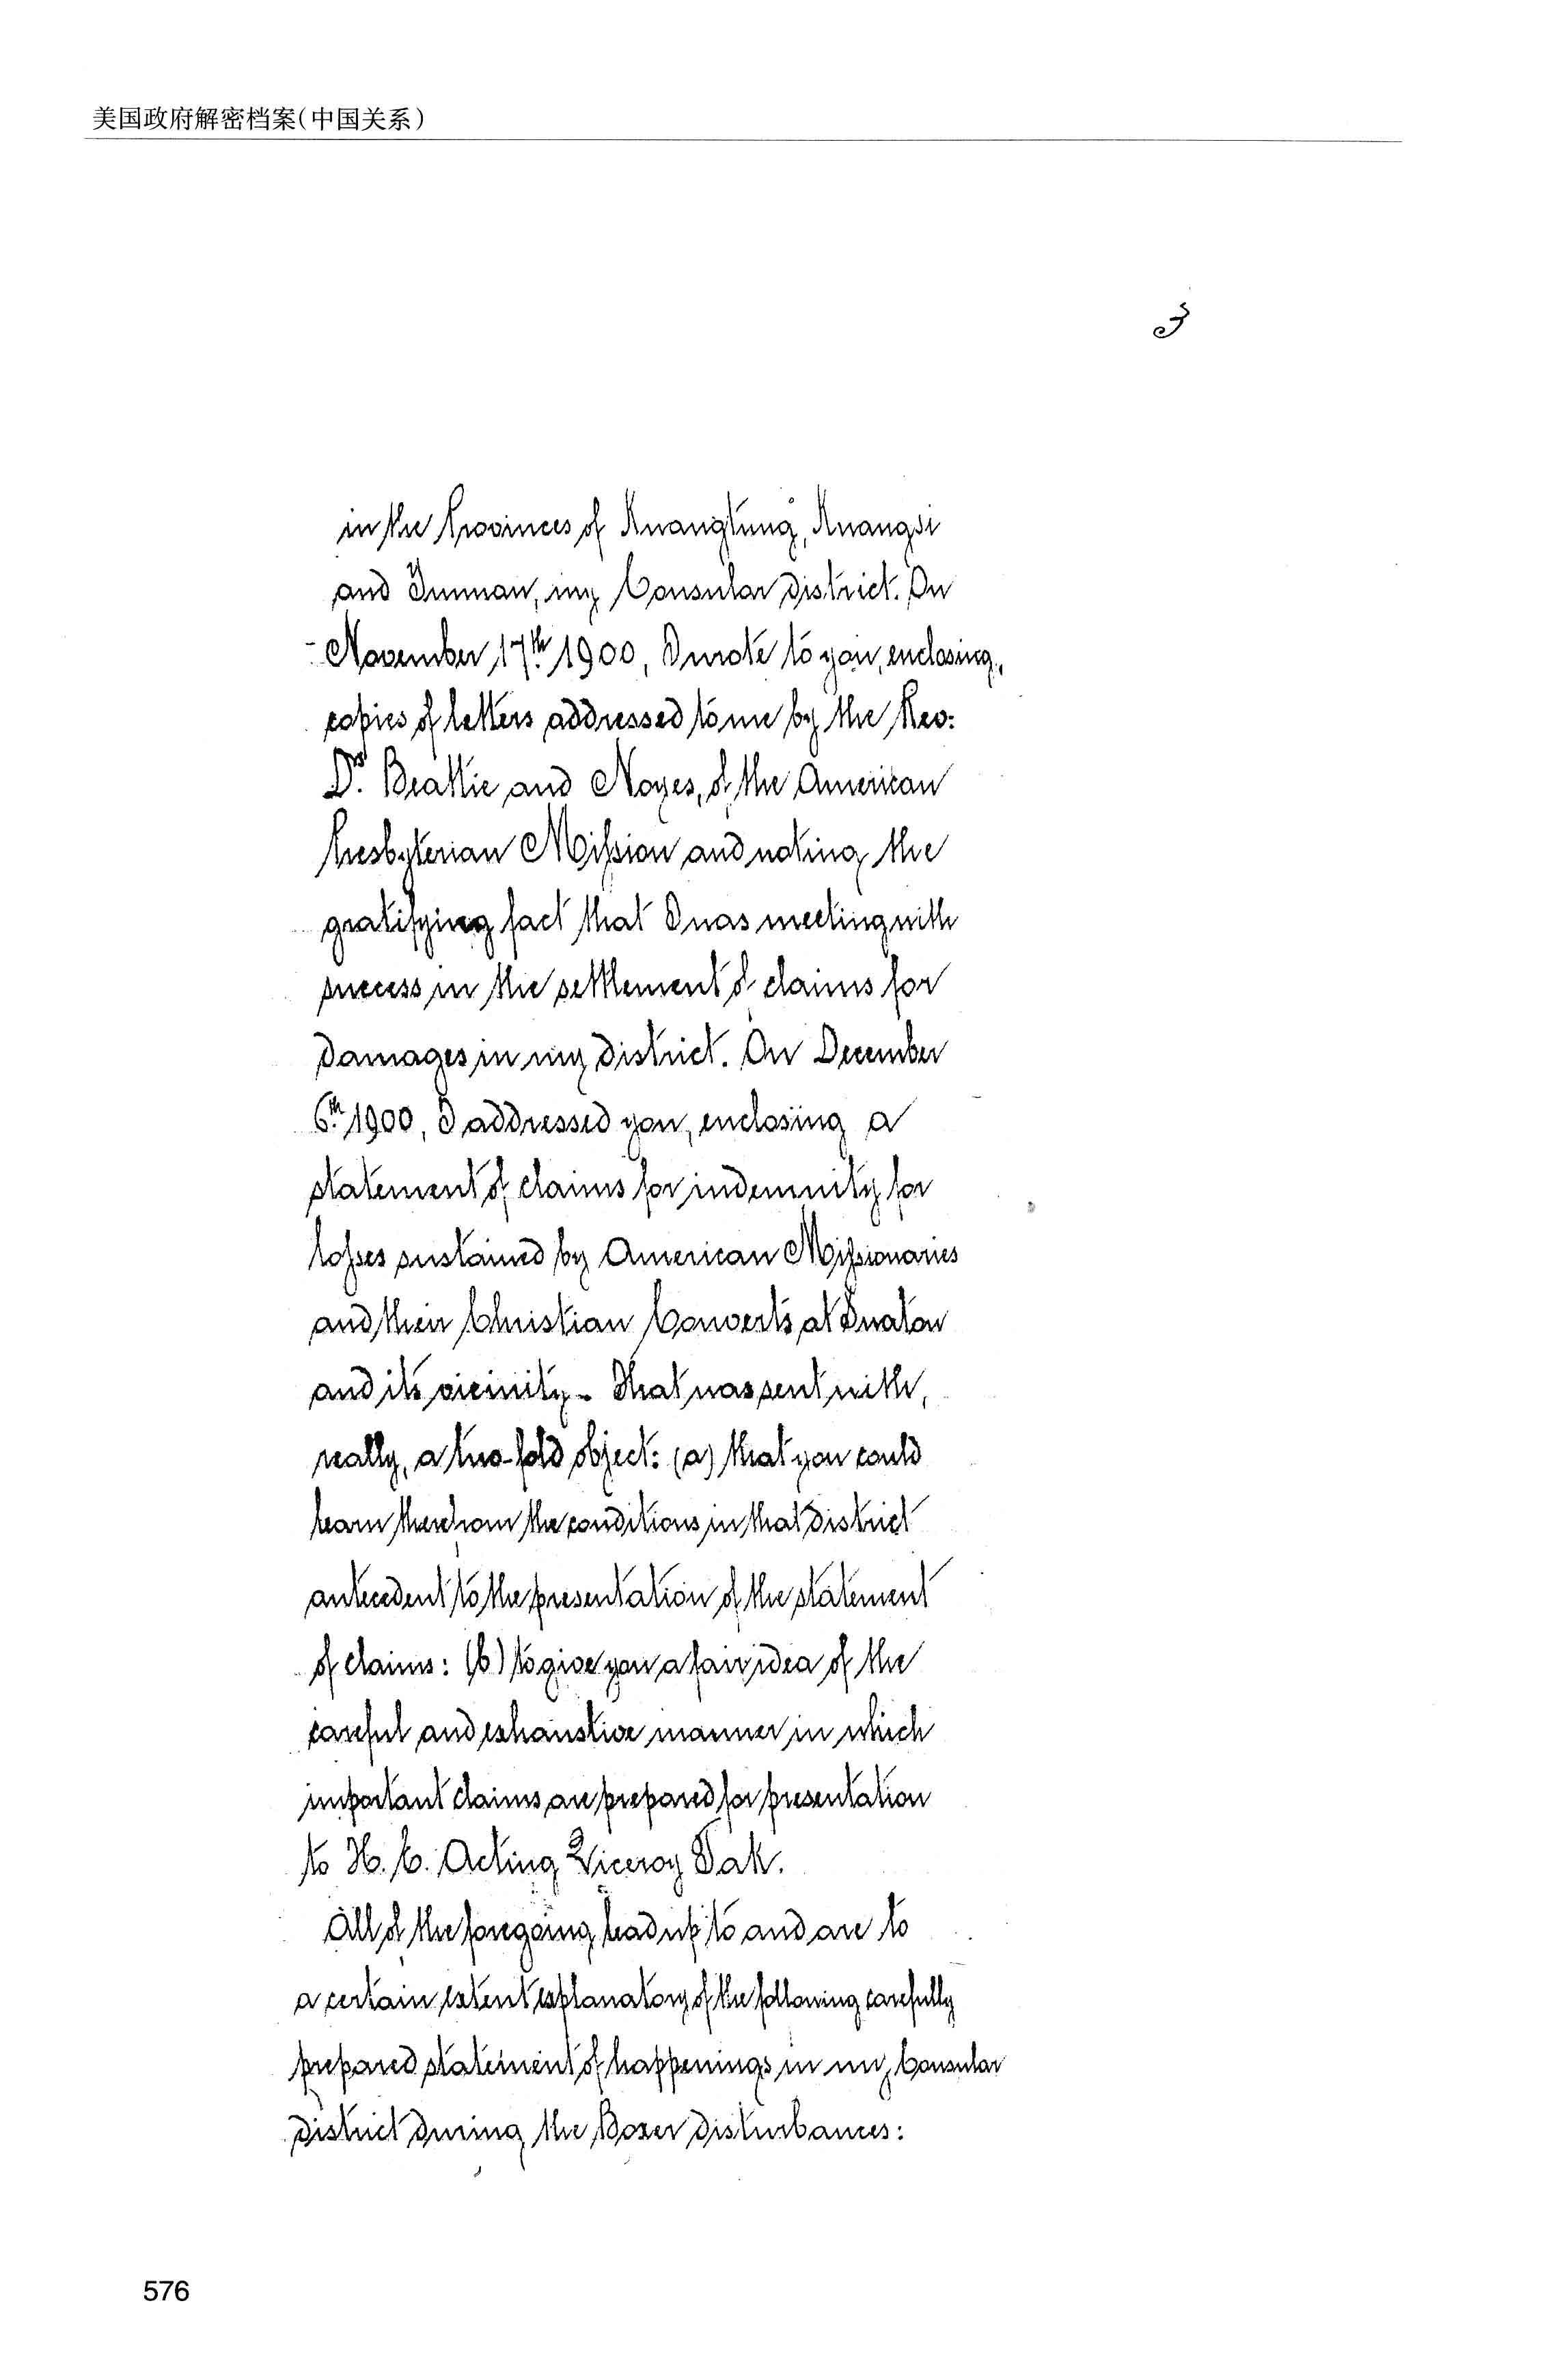 美国政府解密档案(中国关系)
3
in the Provinces of Kuangtung, Kuangsi
and Yunnan, my Consular District. On
November 17th 1900, I wrote to you, enclosing,
copies of letters addressed to me by the Rev:
Drs. Beattie and Noyes, of the American
Presbyterian Mission and noting the
gratifying fact that I was meeting with
success in the settlement of claims for
damages in my district. On December
6th 1900, I addressed you, enclosing a
statement of claims for indemnity for
losses sustained by American Missionaries
and their Christian Converts at Swatow
and its vicinity - That was sent with,
really, a two-fold object: (a) that you could
learn therefrom the conditions in that district
antecedent to the presentation of the statement
of claims: (b) to give you a fair idea of the
careful and exhaustive manner in which
important claims are prepared for presentation
to H. E. Acting Viceroy Tak.
All of the foregoing lead up to and are to
a certain extent explanatory of the following carefully
prepared statement of happenings in my Consular
district during the Boxer disturbances:
576